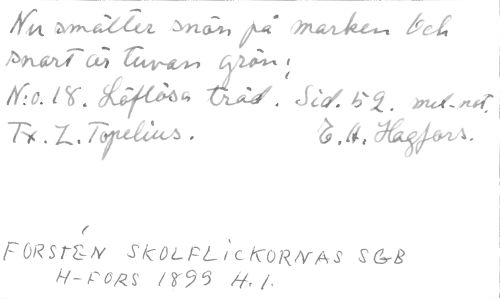 Nu smälter snön på marken Och
snart är tuvan grön;
N:o. 18. Löflösa träd. Sid. 52. mel-not.
Tx. Z. Topelius. E. A. Hagfors.
FORSTÉN SKOLFLICKORNAS SGB
H-FORS 1899 H. 1.